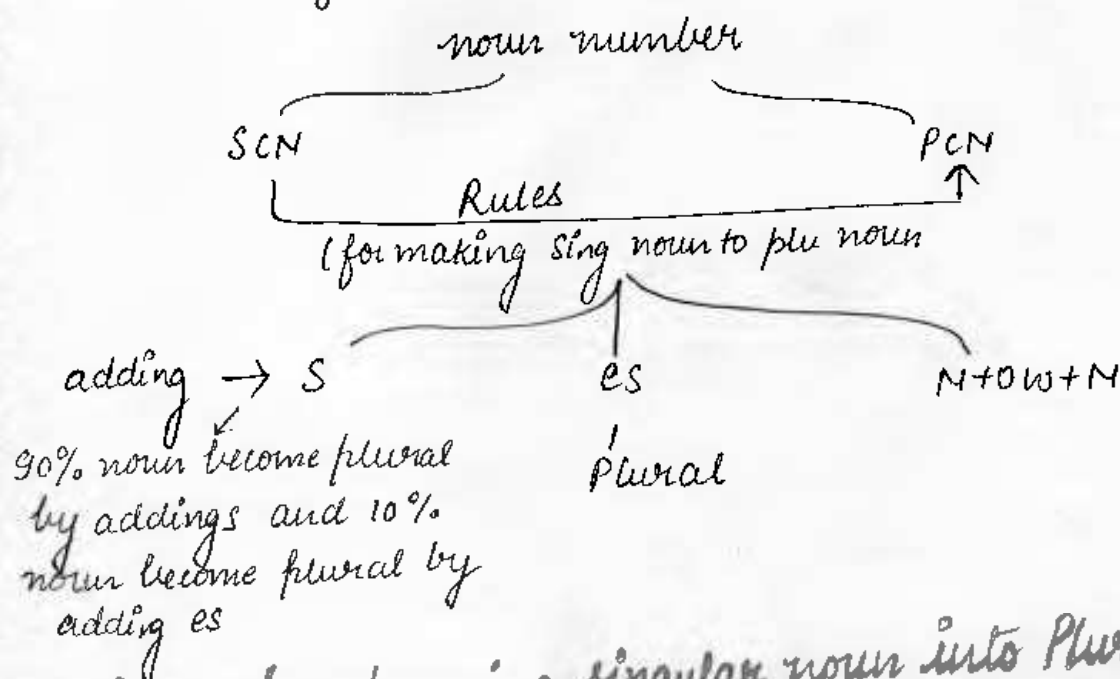 noun number
SCN PCN
Rules
(for making Sing noun to plu noun
adding → S es N+OW+N
90% noun become plural Plural
by addings and 10%
noun become plural by
adding es
singular noun into Plu